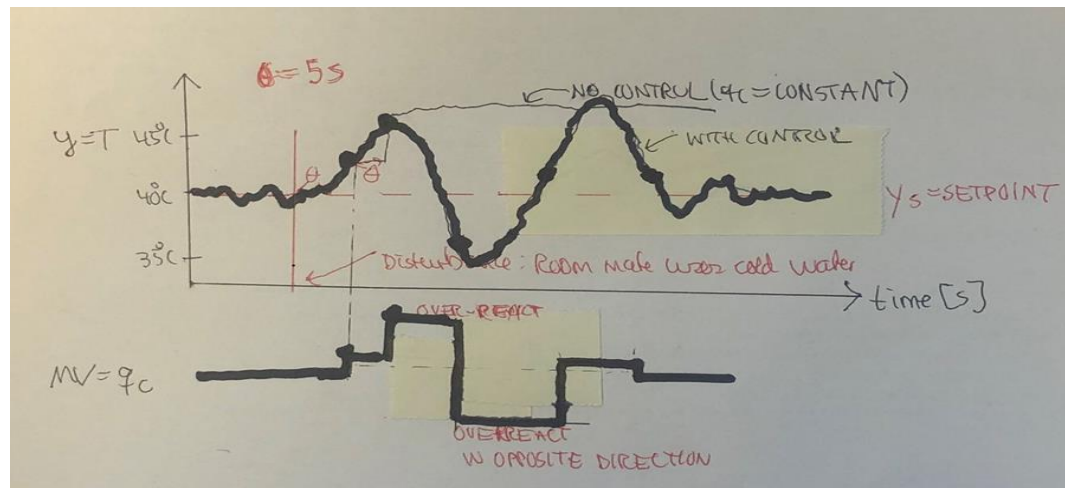 θ = 5s
NO CONTROL (qc = CONSTANT)
y=T
45°C
WITH CONTROL
θ
θ
40°C
ys = SETPOINT
35°C
Disturbance: ROOM MATE USES COLD WATER
time [s]
OVER-REACT
MV = qc
OVERREACT
IN OPPOSITE DIRECTION